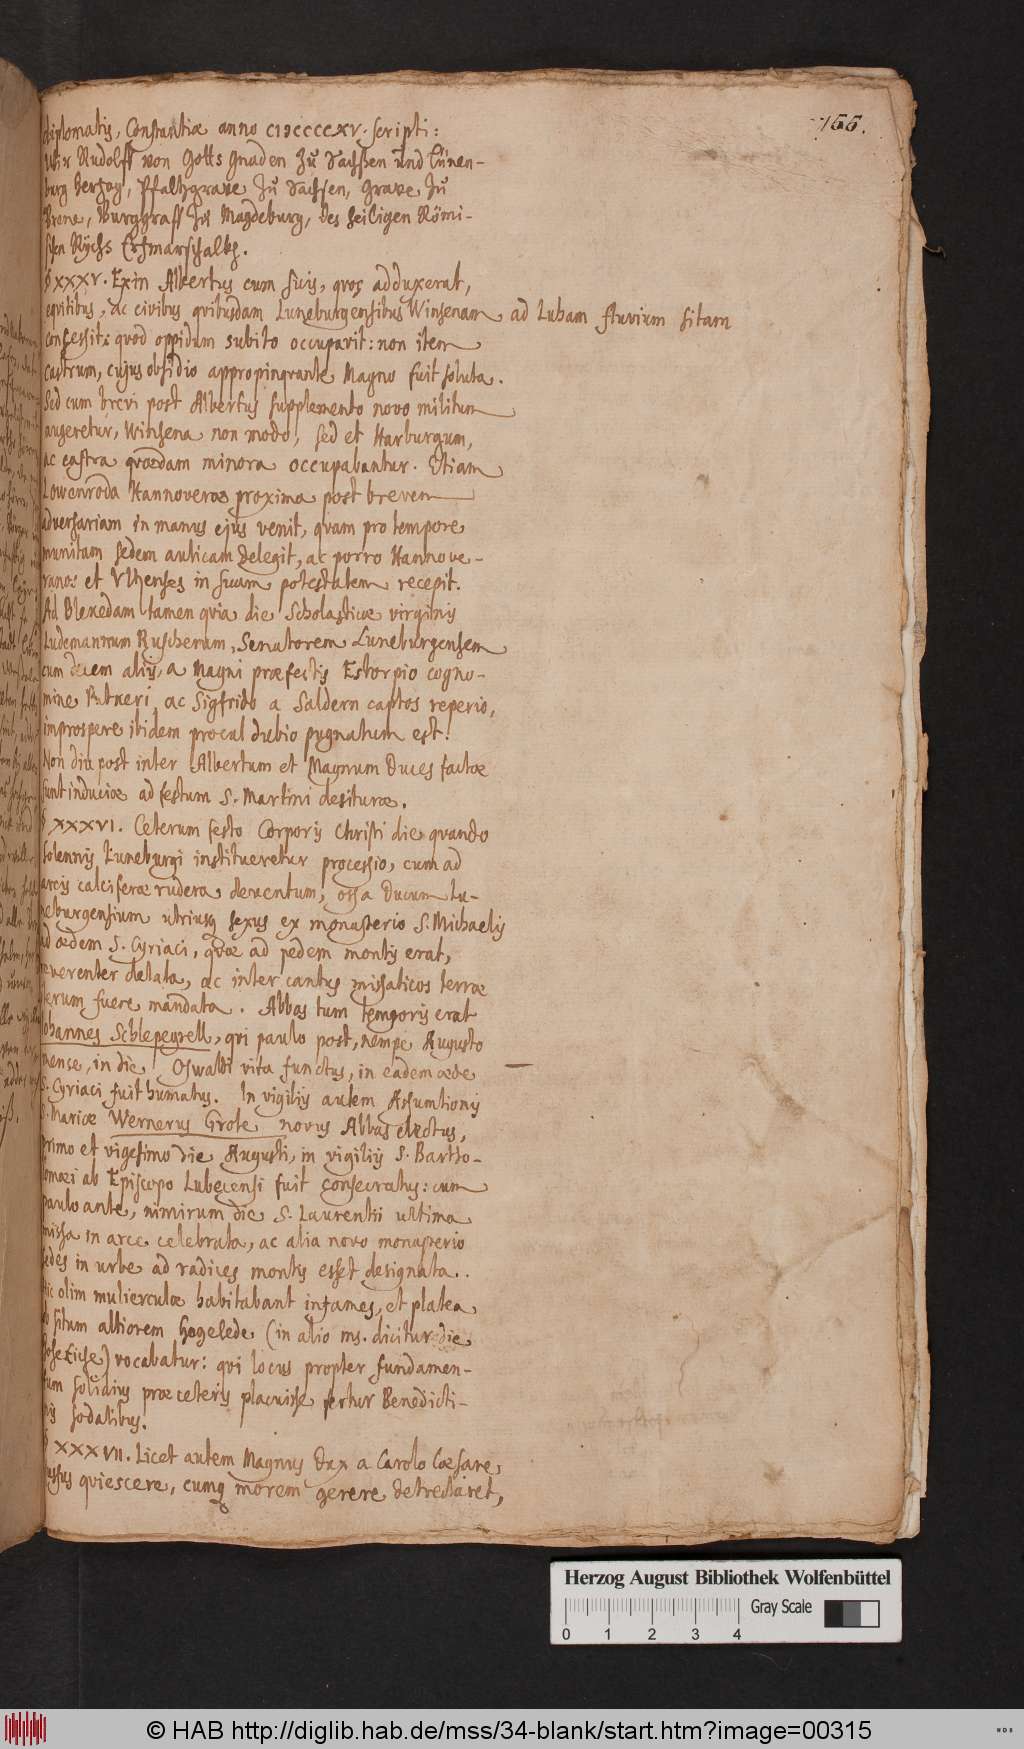 155.
diplomatis, Constantiæ anno CIƆCCCCXV. scripti:
Wihr Rudolff von Gotts Gnaden Zu Sachssen und Lünen-
burg Hertzog, Pfaltzgrave Zu Sachsen, Grave Zu
Brene, Burggraff zu Magdeburg, des heiligen Römi-
schen Rychs Ertzmarschalk.
§ XXXV. Exin Albertus cum suis, quos adduxerat,
equitibus, ac civibus quibusdam Luneburgensibus Winsenam ad Luham fluvium sitam
concessit: quod oppidum subito occupavit: non item
castrum, cujus obsidio appropinquante Magno fuit soluta.
Sed cum brevi post Albertus supplemento novo militum
augeretur, Winsena non modo, sed et Harburgum,
ac castra quædam minora occupabantur. Etiam
Lowenroda Hannoveræ proxima post brevem
adversariam in manus ejus venit, quam pro tempore
munitam sedem aulicam delegit, ac porro Hannove-
ranos et Ulzenses in suam potestatem recepit.
Ad Blekedam tamen quia die Scholasticæ virginis
Ludemannum Ruscherum, Senatorem Luneburgensem
cum decem aliis, a Magni præfectis Estorpio cogno-
mine, ac Sigfrido a Saldern captos reperio,
improspere ibidem procul dubio pugnatum est.
Non diu post inter Albertum et Magnum Duces factæ
sunt induciæ ad festum S. Martini desituræ.
§ XXXVI. Ceterum festo Corporis Christi die, quando
solennis Luneburgi institueretur processio, cum ad
arcis calciferæ rudera deventum, ossa Ducum Lu-
neburgensium utriusq sexus ex monasterio S. Michaelis
ad ædem S. Cyriaci, quæ ad pedem montis erat,
reverenter delata, ac inter cantus missaticos terræ
iterum fuere mandata. Abbas tum temporis erat
Johannes Schlepegrell, qui paulo post, nempe Augusto
mense, in die Oswaldi vita functus, in eadem æde
S. Cyriaci fuit humatus. In vigiliis autem Assumtionis
S. Mariæ Wernerus Grote novus Abbas electus,
primo et vigesimo die Augusti, in vigiliis S. Bartho-
lomæi ab Episcopo Lubecensi fuit consecratus: cum
paulo ante, nimirum die S. Laurentii ultima
missa in arce celebrata, ac alia novo monasterio
sedes in urbe ad radices montis esset designata.
Hic olim mulierculæ habitabant infames, et platea
ob situm altiorem Hogelede (in alio ms. dicitur die
) vocabatur: qui locus propter fundamen-
tum solidius præ ceteris placuisse fertur Benedicti-
nis sodalibus.
§ XXXVII. Licet autem Magnus Dux a Carolo Cæsare,
jussus quiescere, cumq morem gerere detrectaret,
Herzog August Bibliothek Wolfenbüttel
Gray Scale
0 1 2 3 4
© HAB http://diglib.hab.de/mss/34-blank/start.htm?image=00315